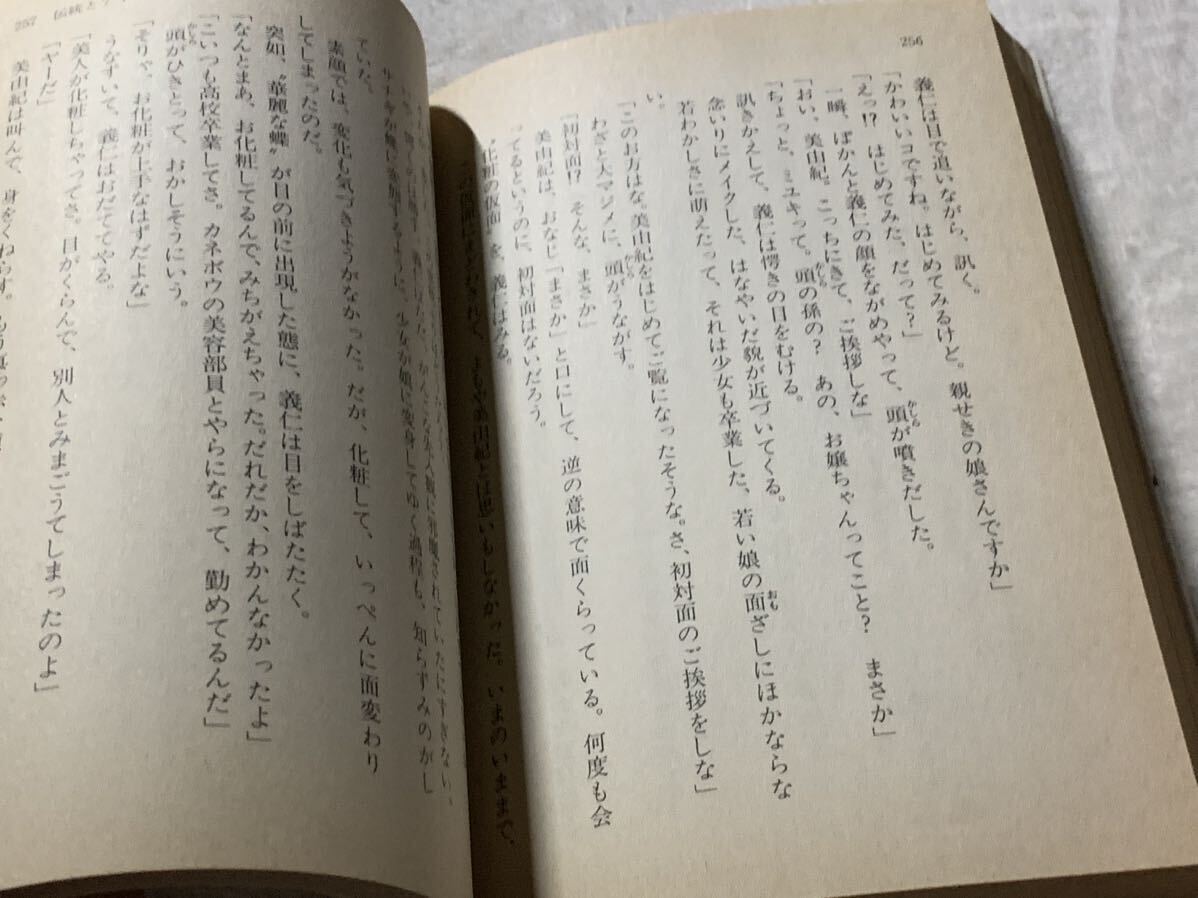 256
義仁は目で追いながら、訊く。
「かわいいコですね。はじめてみるけど。親せきの娘さんですか」
「えっ!? はじめてみた、だって?」
一瞬、ぽかんと義仁の顔をながめやって、頭が噴きだした。
「おい、美由紀。こっちにきて、ご挨拶しな」
「ちょっと、ミユキって。頭の孫の? あの、お嬢ちゃんってこと? まさか」
訊きかえして、義仁は愕きの目をむける。
念いりにメイクした、はなやいだ貌が近づいてくる。
若わかしさに萌えたって、それは少女も卒業した、若い娘の面ざしにほかならな
い。
「このお方はな。美由紀をはじめてご覧になったそうな。さ、初対面のご挨拶をしな」
わざと大マジメに、頭がうながす。
「初対面!? そんな、まさか」
美由紀は、おなじ「まさか」と口にして、逆の意味で面くらっている。何度も会
ってるというのに、初対面はないだろう。
〝化粧の仮面〟を、義仁はみる。
まもや美由紀とは思いもしなかった。いまのいままで、
257
少女が娘に変身してゆく過程も、知らずみのがし
ていた。
素顔では、変化も気づきようがなかった。だが、化粧して、いっぺんに面変わり
してしまったのだ。
突如、〝華麗な蝶〟が目の前に出現した態に、義仁は目をしばたたく。
「なんとまあ、お化粧してるんで、みちがえちゃった。だれだか、わかんなかったよ」
「こいつも高校卒業してさ。カネボウの美容部員とやらになって、勤めてるんだ」
頭がひきとって、おかしそうにいう。
「そりゃ、お化粧が上手なはずだよな」
うなずいて、義仁はおだててやる。
「美人が化粧しちゃってさ。目がくらんで、別人とみまごうてしまったのよ」
「ヤーだ」
美由紀は叫んで、身をくねらす。